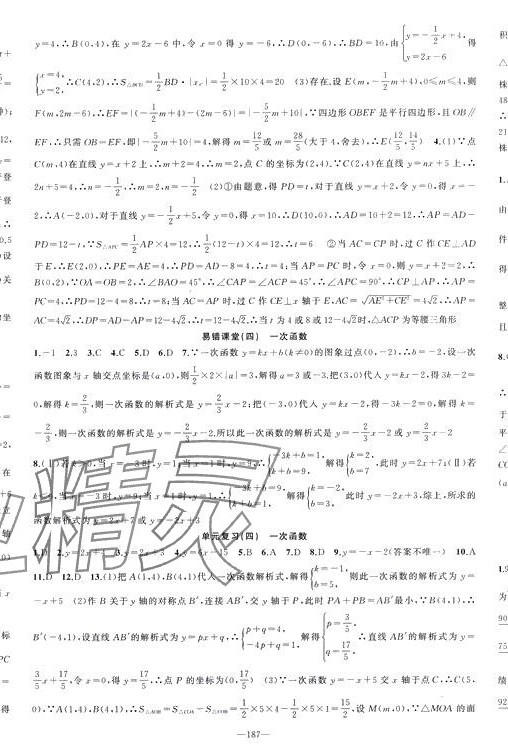 y=4,∴B(0,4),在 y=2x-6 中,令 x=0 得 y=-6,∴D(0,-6),∴BD=10,由{y=-1/2x+4, y=2x-6 得
{x=4, y=2,∴C(4,2),∴S△BCD=1/2BD·|xC|=1/2×10×4=20 (3)存在.设 E(m,-1/2m+4),0≤m≤4,则
F(m,2m-6),∴EF=|(-1/2m+4)-(2m-6)|=|-5/2m+10|,∵四边形 OBEF 是平行四边形,且 OB∥
EF,∴只需 OB=EF,即|-5/2m+10|=4,解得 m=12/5或 m=28/5(大于 4,舍去),∴E(12/5,14/5) 4.(1)∵点
C(m,4)在直线 y=x+2 上,∴m+2=4,∴m=2,点 C 的坐标为(2,4).∵C(2,4)在直线 y=nx+5 上,∴
2n+5=4,∴n=-1/2,∴m=2,n=-1/2 (2)①由题意,得 PD=t,对于直线 y=x+2,令 y=0,得 x=-
2,∴A(-2,0).对于直线 y=-1/2x+5,令 y=0,得 x=10,∴D(10,0),∴AD=10+2=12,∴AP=AD-
PD=12-t,∵S△APC=1/2AP×4=12,∴1/2(12-t)×4=12,∴t=6 ②当 AC=CP 时,过 C 作 CE⊥AD
于 E,∴E(2,0),∴PE=AE=4,∴PD=AD-8=4,∴t=4;当 AP=PC 时,令 x=0,则 y=x+2=2,∴
B(0,2),∵OA=OB=2,∴∠BAO=45°,∴∠CAP=∠ACP=45°,∴∠APC=90°,∴CP⊥AP,∴AP=
PC=4,∴PD=12-4=8,∴t=8;当 AC=AP 时,过 C 作 CE⊥x 轴于 E,∴AC=√AE²+CE²=4√2,∴AP=
AC=4√2,∴DP=AD-AP=12-4√2,∴t=12-4√2.当 t 为 4 或 8 或 12-4√2时,△APC 为等腰三角形
易错课堂(四) 一次函数
1.-1 2.3 3.C 4.C 5.D 6.D 7.∵一次函数 y=kx+b(k≠0)的图象过点(0,-2),∴b=-2,设一次
函数图象与 x 轴交点坐标是(a,0),则1/2×2×|a|=3,解得 a=±3,把(3,0)代入 y=kx-2,得 3k-2=
0,解得 k=2/3,则一次函数的解析式是 y=2/3x-2;把(-3,0)代入 y=kx-2,得-3k-2=0,解得 k=
-2/3,则一次函数的解析式是 y=-2/3x-2.所以此一次函数的解析式为 y=2/3x-2 或 y=-2/3x-2
8.(Ⅰ)若 k>0,当 x=-3 时,y=1;当 x=1 时,y=9,∴{-3k+b=1, k+b=9, 解得{k=2, b=7,此时 y=2x+7;(Ⅱ)若
k<0,当 x=-3 时,y=9;当 x=1 时,y=1,∴{-3k+b=9, k+b=1, 解得{k=-2, b=3,此时 y=-2x+3.综上,所求的
函数解析式为 y=2x+7 或 y=-2x+3
单元复习(四) 一次函数
1.D 2.y=2x+3 3.y=2x 4.y=6x-15 5.B 6.A 7.D 8.B 9.y=-x-2(答案不唯一) 10.A
11.D 12.D 13.(1)把 A(1,4),B(4,1)代入一次函数解析式,得{k+b=4, 4k+b=1, 解得{k=-1, b=5, 则此一次函数的解析式为 y=
-x+5 (2)作 B 关于 y 轴的对称点 B′,连接 AB′,交 y 轴于 P,此时 PA+PB=AB′最小,∵B(4,1),∴
B′(-4,1),设直线 AB′的解析式为 y=px+q,∴{p+q=4, -4p+q=1, 解得{p=3/5, q=17/5, ∴直线 AB′的解析式为 y=
3/5x+17/5,令 x=0,得 y=17/5,∴点 P 的坐标为(0,17/5) (3)∵一次函数 y=-x+5 交 x 轴于点 C,∴C(5,
0),∴S△AOB=S△COA-S△COB=1/2×5×4-1/2×5×1=15/2,设 M(m,0),∵△MOA 的面
—187—